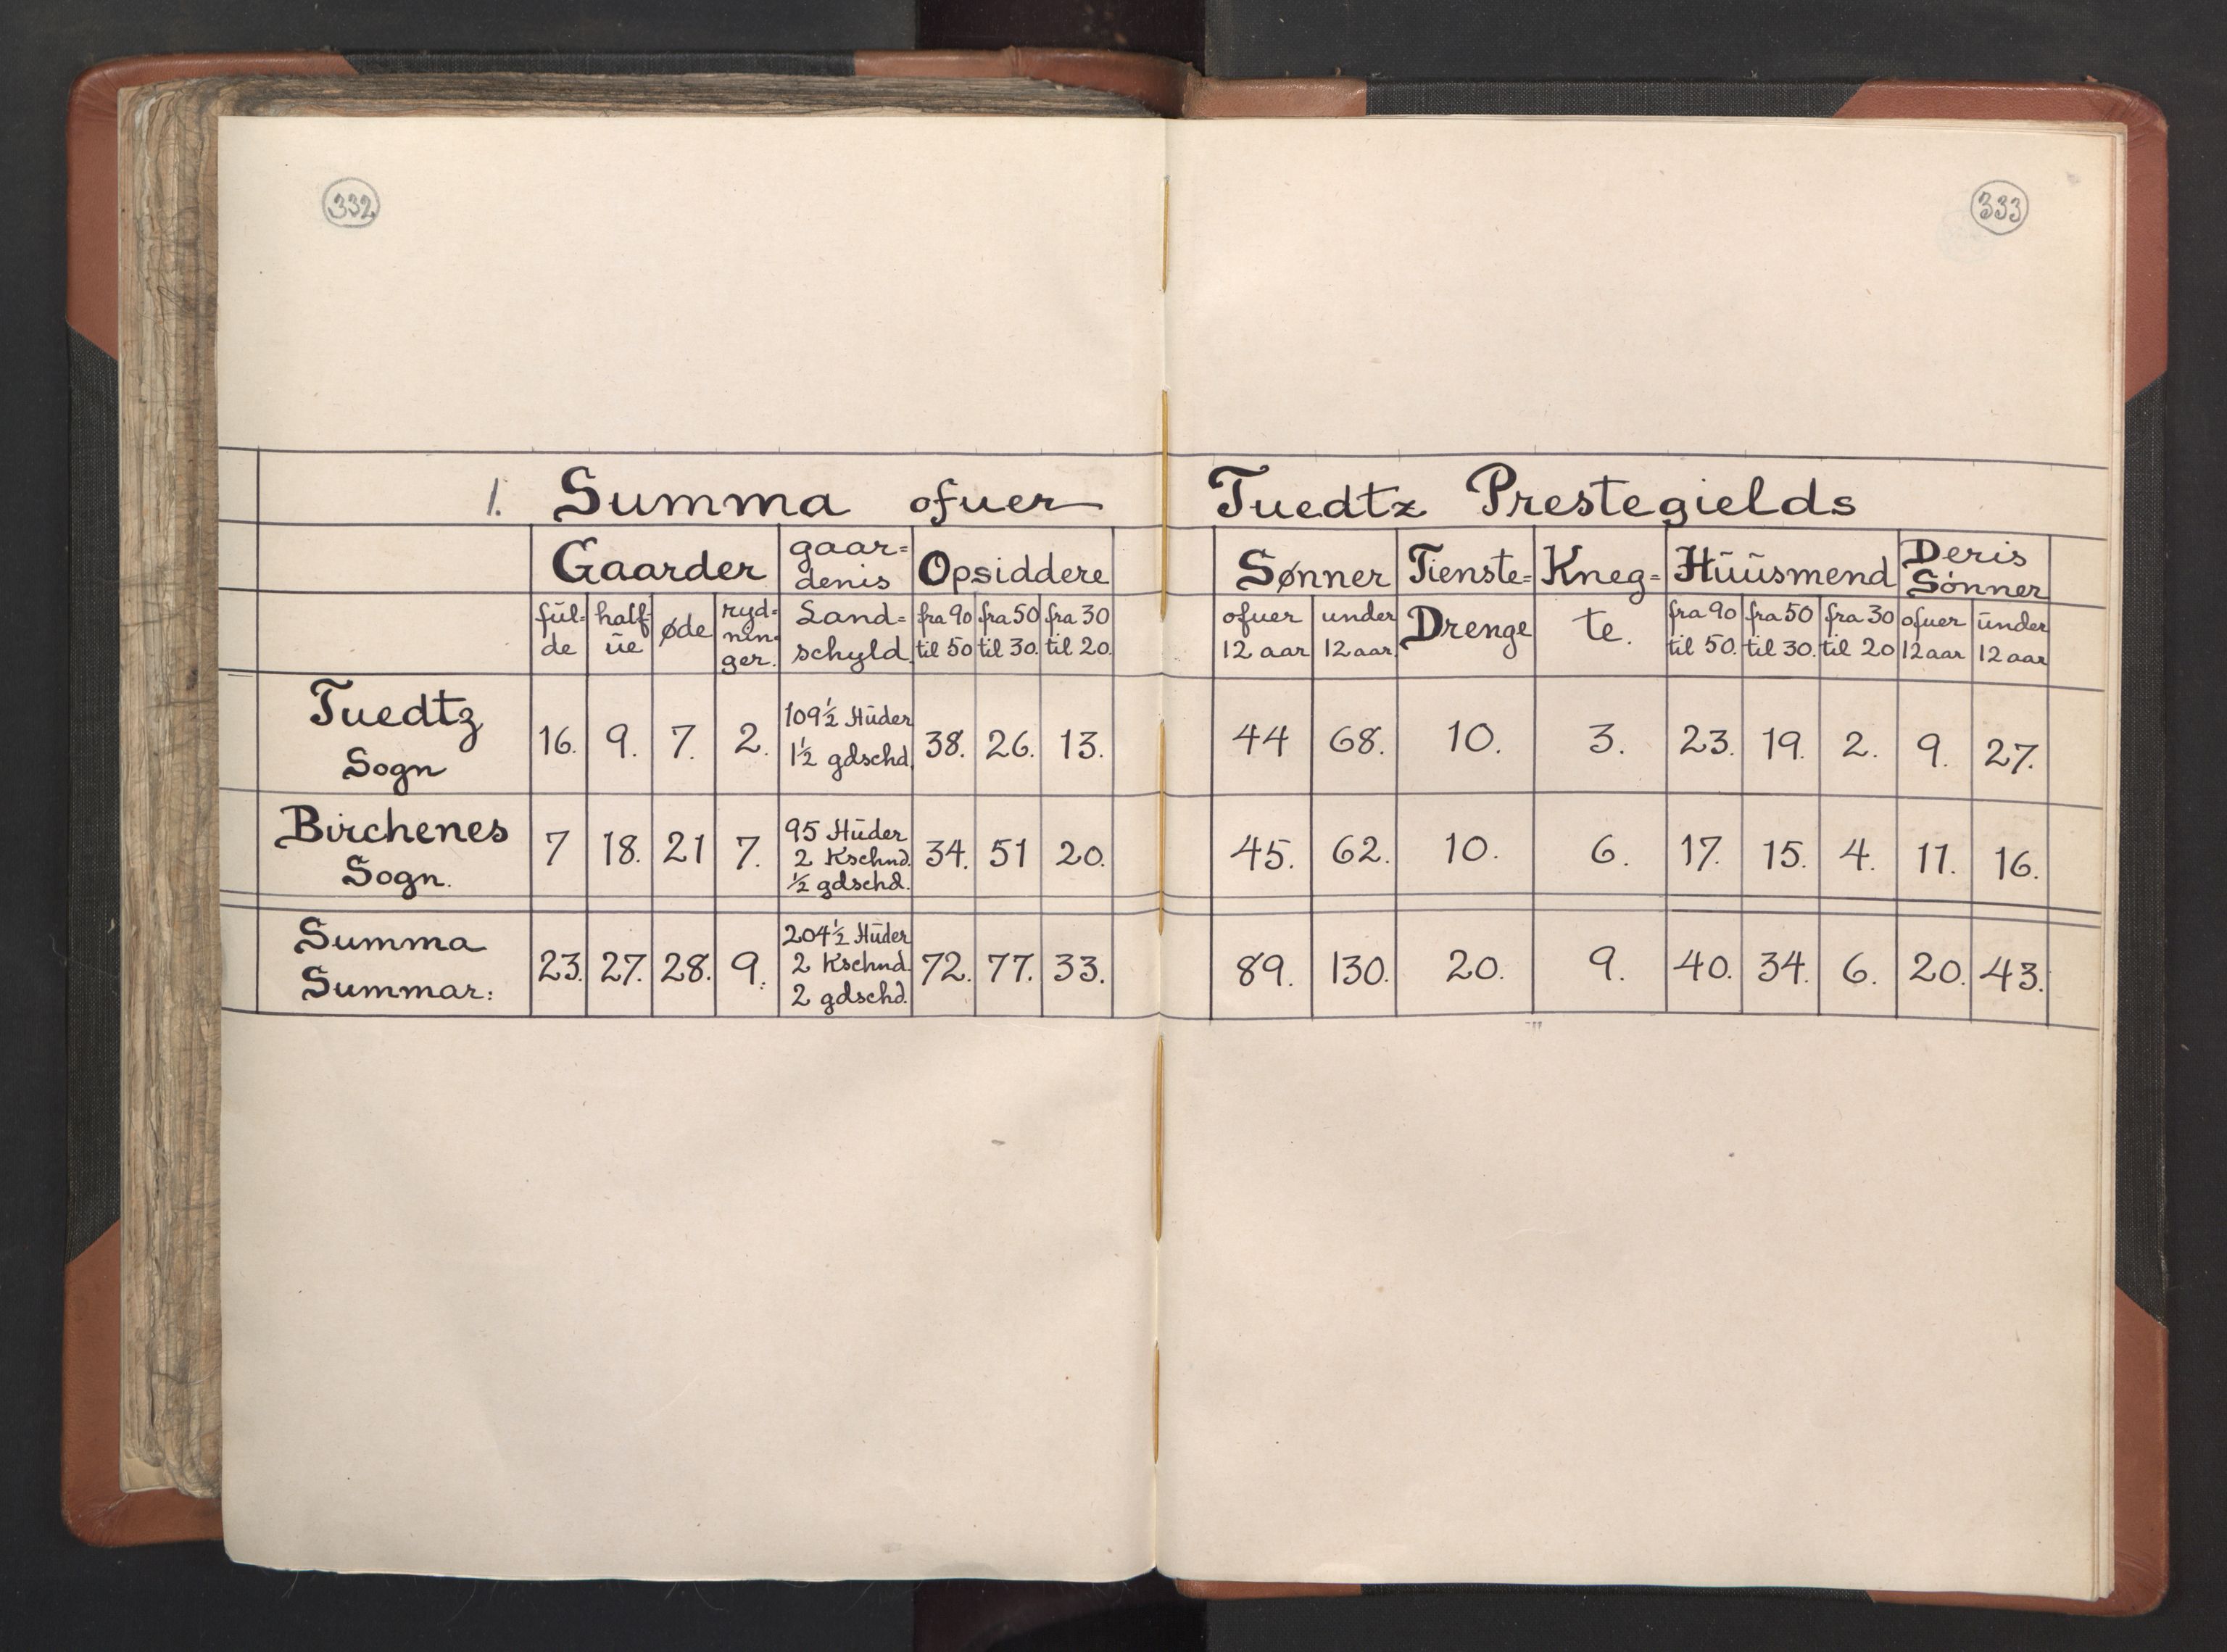 332
333
1. Summa ofuer Tuedtz Prestegields
Gaarder gaar= Opsiddere Sønner Tienste= Kneg= Hüüsmend Deris
denis Sønner
fül= half= øde ryd= Land= fra 90 fra 50 fra 30 ofuer under Drenge te. fra 90 fra 50 fra 30 ofuer ünder
de üe nin= schyld til 50 til 30. til 20. 12 aar 12 aar. til 50. til 30. til 20 12 aar 12 aar
ger.
Tuedtz 16. 9. 7. 2. 109½ Hüder 38. 26. 13. 44 68. 10. 3. 23. 19. 2. 9. 27.
Sogn 1½ gdschd.
Birchenes 7 18. 21 7. 95 Hüder 34. 51 20. 45. 62. 10. 6. 17. 15. 4. 11. 16.
Sogn. 2 Kschnd.
½ gdschd.
Summa 23. 27. 28. 9. 204½ Hüder 72. 77. 33. 89. 130. 20. 9. 40. 34. 6. 20. 43.
Summar: 2 Kschnd.
2 gdschd.